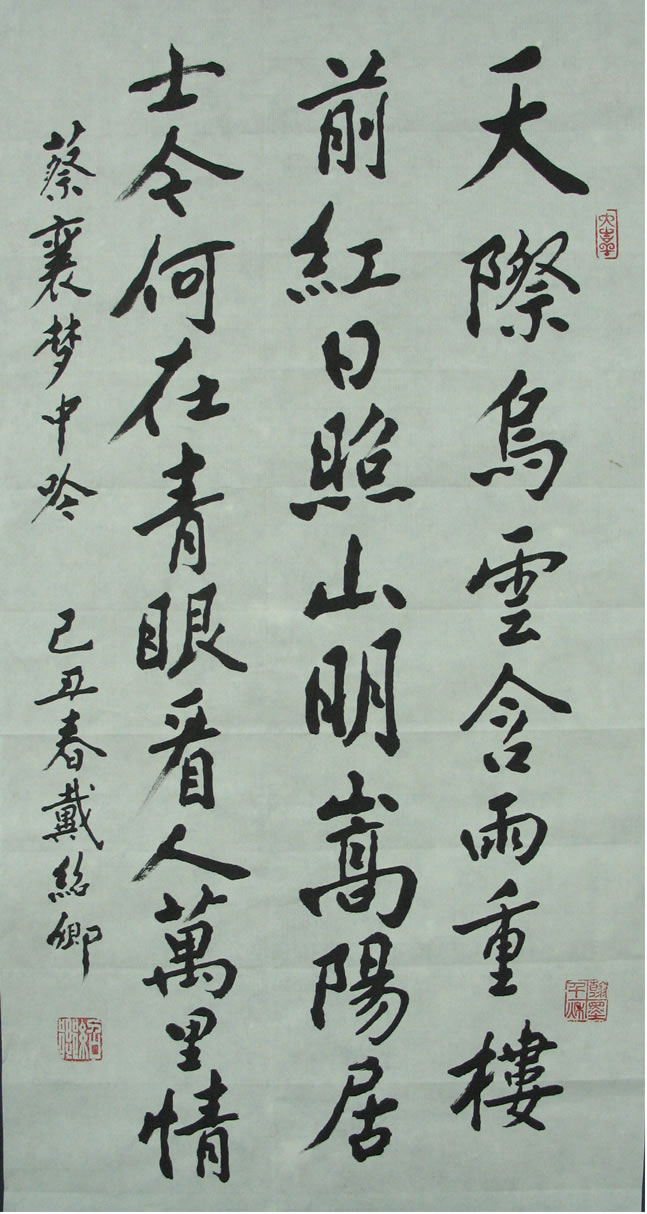 天際烏雲含雨重樓
前紅日照山明嵩陽居
士今何在青眼看人萬里情
蔡襄梦中吟 己丑春戴紹卿